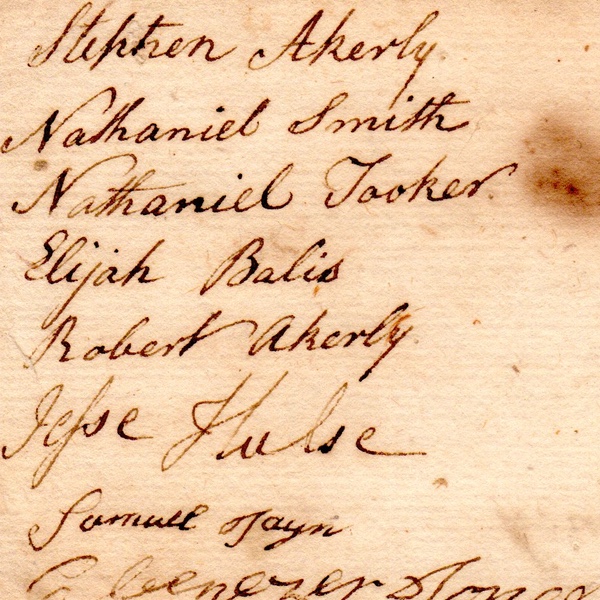 Stephen Akerly
Nathaniel Smith
Nathaniel Tooker
Elijah Balis
Robert Akerly
Jesse Hulse
Samuel Jayn
Ebenezer Jones